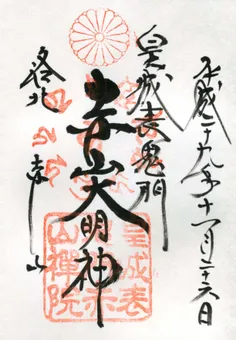 平成二十九年十一月二十六日
皇城表鬼門
赤山大明神
洛北 赤山
皇城表
山禅院